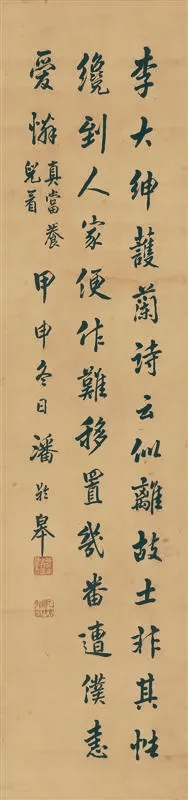 李大紳䕶蘭詩云似離故土非其性
纔到人家便作難移置幾番遭僕恚
愛憐真當養兒看甲申冬日潘齡皋